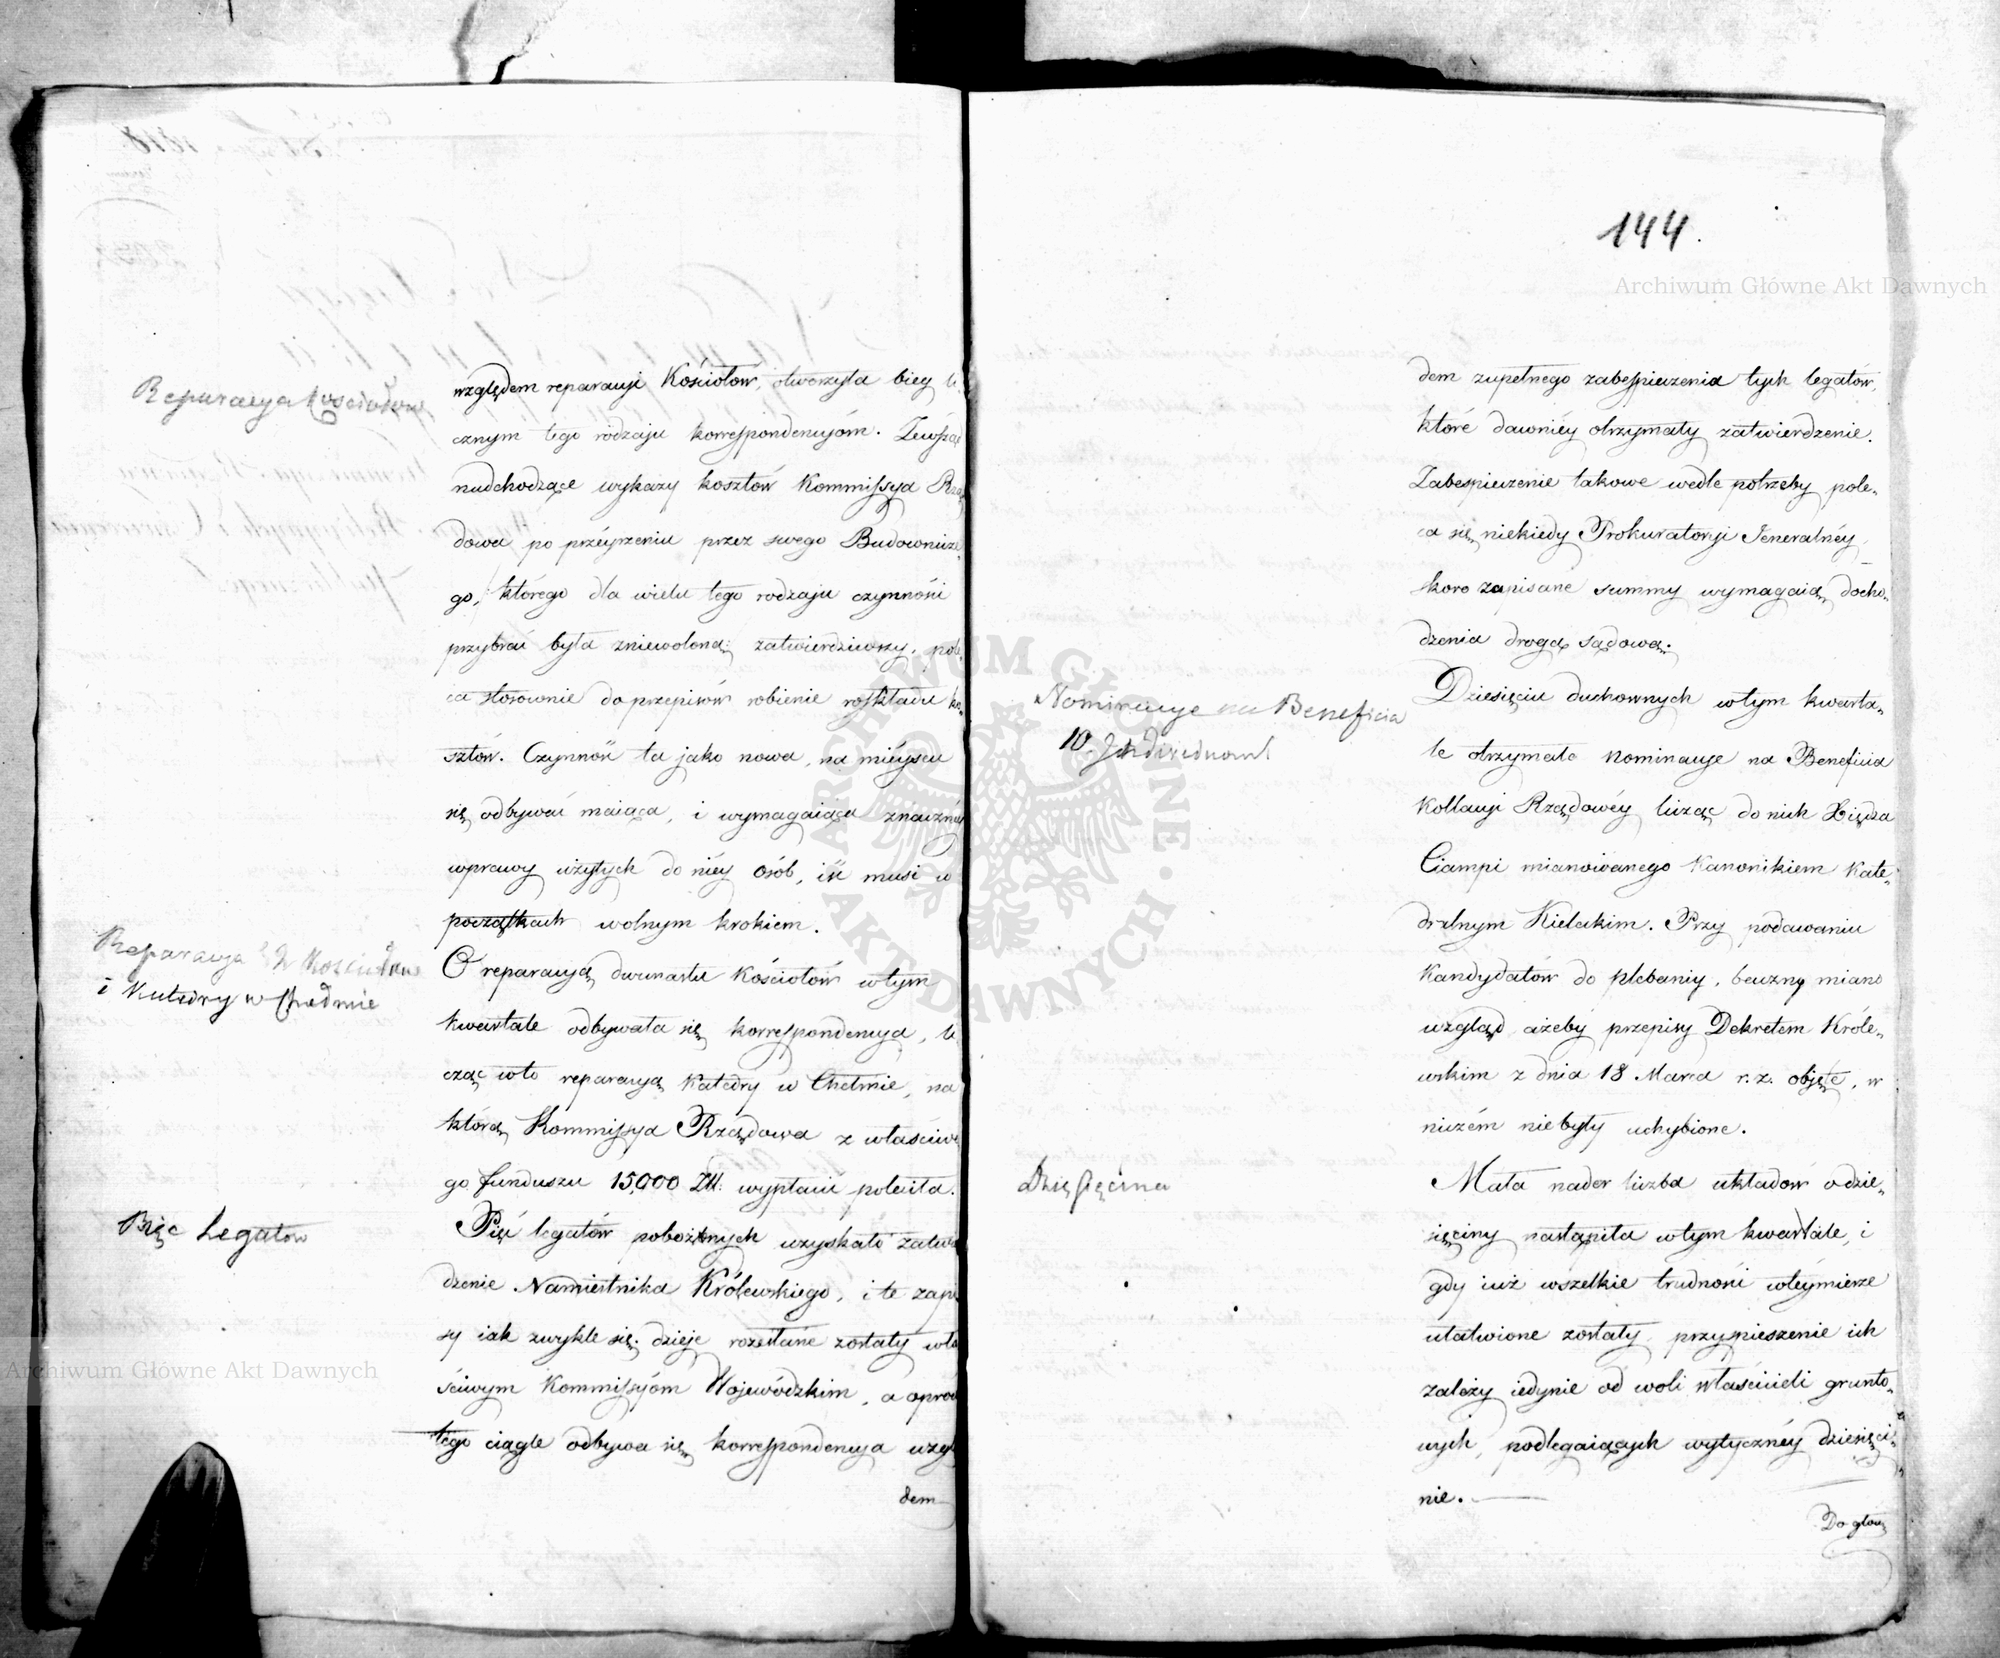 Reparacya Kosciołow
względem reparacyi Kościołow, otworzyła bieg li
cznym tego rodzaju korrespondencyóm. Zewsząd
nadchodzące wykazy kosztów Kommissya Rzą
dowa po przéyrzeniu przez swego Budownicze-
go, którego dla wielu tego rodzaju czynności
przybrać była zniewoloną; zatwierdziwszy, pole
ca stosownie do przepisów robienie rozkładu ko-
sztów. Czynność ta jako nowa, na miéyscu
się odbywać maiąca, i wymagaiąca znaczné
wprawy użytych do niéy osób, iść musi w
początkach wolnym krokiem.
Reparacya 12 Kosciołow
i Katedry w Chełmie
O reparacyą dwunastu Kościołów wtym
kwartale odbywała się korrespondencya, li
cząc wto reparacyą Katedry w Chełmie, na
którą Kommissya Rządowa z właściwe
go funduszu 15,000 Złł: wypłacić poleciła.
Pięc Legatow
Pięć legatów pobożnych uzyskało zatwi
dzenie Namiestnika Królewskiego, i te zapi
sy iak zwykle się dzieje rozesłane zostały wła
ściwym Kommissyóm Wojewódzkim, a oprócz
tego ciągle odbywa się korrespondencya wzgl
dem
144.
dem zupełnego zabespieczenia tych legatów,
które dawniéy otrzymały zatwierdzenie.
Zabespieczenie takowe wedle potrzeby pole-
ca się niekiedy Prokuratoryi Jeneralnéy,
skoro zapisane summy wymagaią docho-
dzenia drogą sądową.
Nominacye na Beneficia
10.
Dziesięciu duchownych wtym kwarta-
le otrzymało nominacye na Beneficia
Kollacyi Rządowéy licząc do nich Xiędza
Ciampi mianowanego Kanonikiem Kate-
dralnym Kieleckim. Przy podawaniu
Kandydatów do plebaniy, baczny miano
wzgląd ażeby przepisy Dekretem Króle-
wskim z dnia 18 Marca r. z. objęte, w
niczém niebyły uchybione.
Dziesięcina
Mała nader liczba układów o dzie-
sięciny nastąpiła wtym kwartale, i
gdy iuż wszelkie trudności wtéymierze
ułatwione zostały, przyspieszenie ich
zależy iedynie od woli właścicieli grunto-
wych, podlegaiących wytycznéy dziesięci-
nie.
Do głow
Archiwum Główne Akt Dawnych
Archiwum Główne Akt Dawnych
ARCHIWUM GŁÓWNE AKT DAWNYCH